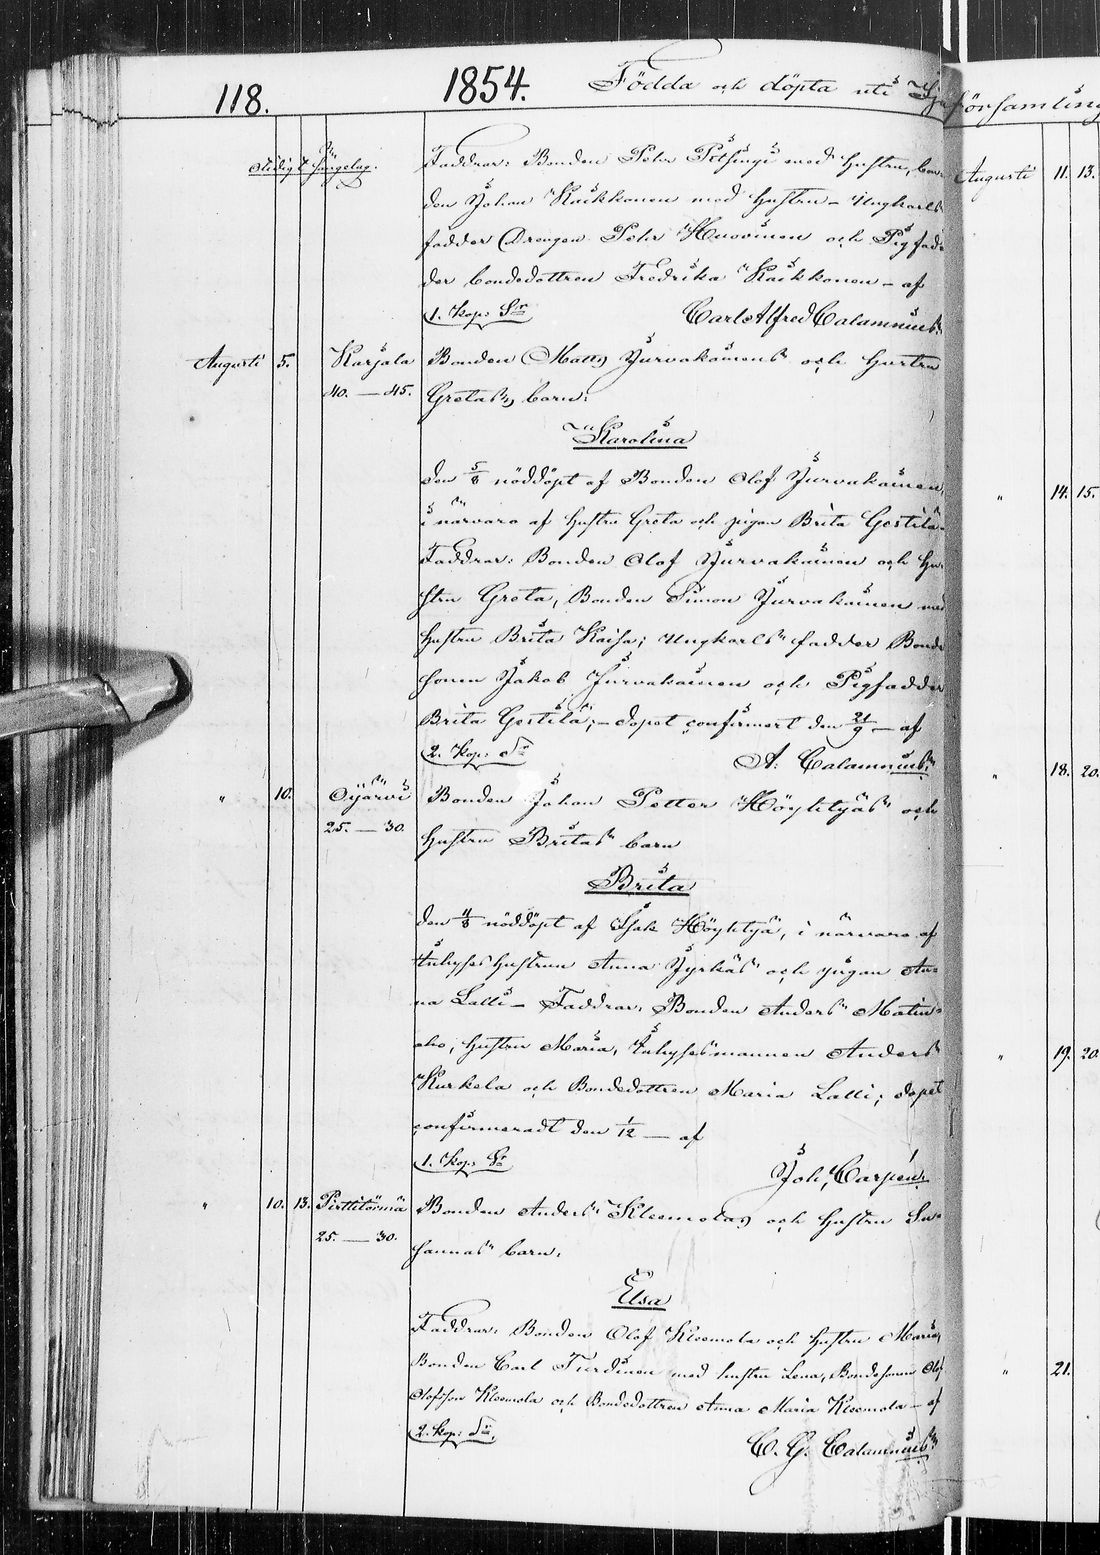 118. 1854. Födda och döpta uti
församling
Faddrar: Bonden Pehr med hustru, bon-
den Johan Kaikkonen med hustru – Ungkarls
fadder Drengen Pehr Huovinen och Pigfad-
der bondedottren Fredrika Kaikkonen – af
1. kop: Carl Alfred Calamnius
Augusti 5. Karjala Bonden Matts Jurvakainens och hustru
40. — 45. Gretas barn:
Karolina
den 5/8 nöddöpt af Bonden Olof Jurvakainen,
i närvaro af hustru Greta och pigan Brita Gestilä
Faddrar: Bonden Olof Jurvakainen och hu-
stru Greta, Bonden Simon Jurvakainen med
hustru Brita Kaisa; Ungkarls fadder Bonde
sonen Jakob Jurvakainen och Pigfadder
Brita Gestilä; – dopet confirmert den 21/9 – af
2. kop: A. Calamnius
" 10. Oijärvi Bonden Johan Petter Höyhtyäs och
25. — 30. hustru Britas barn
Brita
den 11/8 nöddöpt af Isak Höyhtyä, i närvaro af
Inhyses hustrun Anna Jyrkäs och pigan An-
na Lalli – Faddrar, Bonden Anders Matin-
aho, hustru Maria, Inhysesmannen Anders
Kurkela och Bondedottren Maria Lalli; dopet
confirmeradt den 1/12 — af
1. kop: Joh. Carpén
" 10. 13. Pirttitörmä Bonden Anders Kleemolas och hustru Su-
25. — 30. sannas barn:
Elsa
Faddrar: Bonden Olof Kleemola och hustru Maria,
Bonden Carl Turdinen med hustru Lena, Bondesonen Olof
Olofsson Kleemola och Bondedottren Anna Maria Kleemola – af
2. kop: C. G. Calamnius
Augusti 11. 13.
" 14. 15.
" 18. 20.
" 19. 20.
" 21.